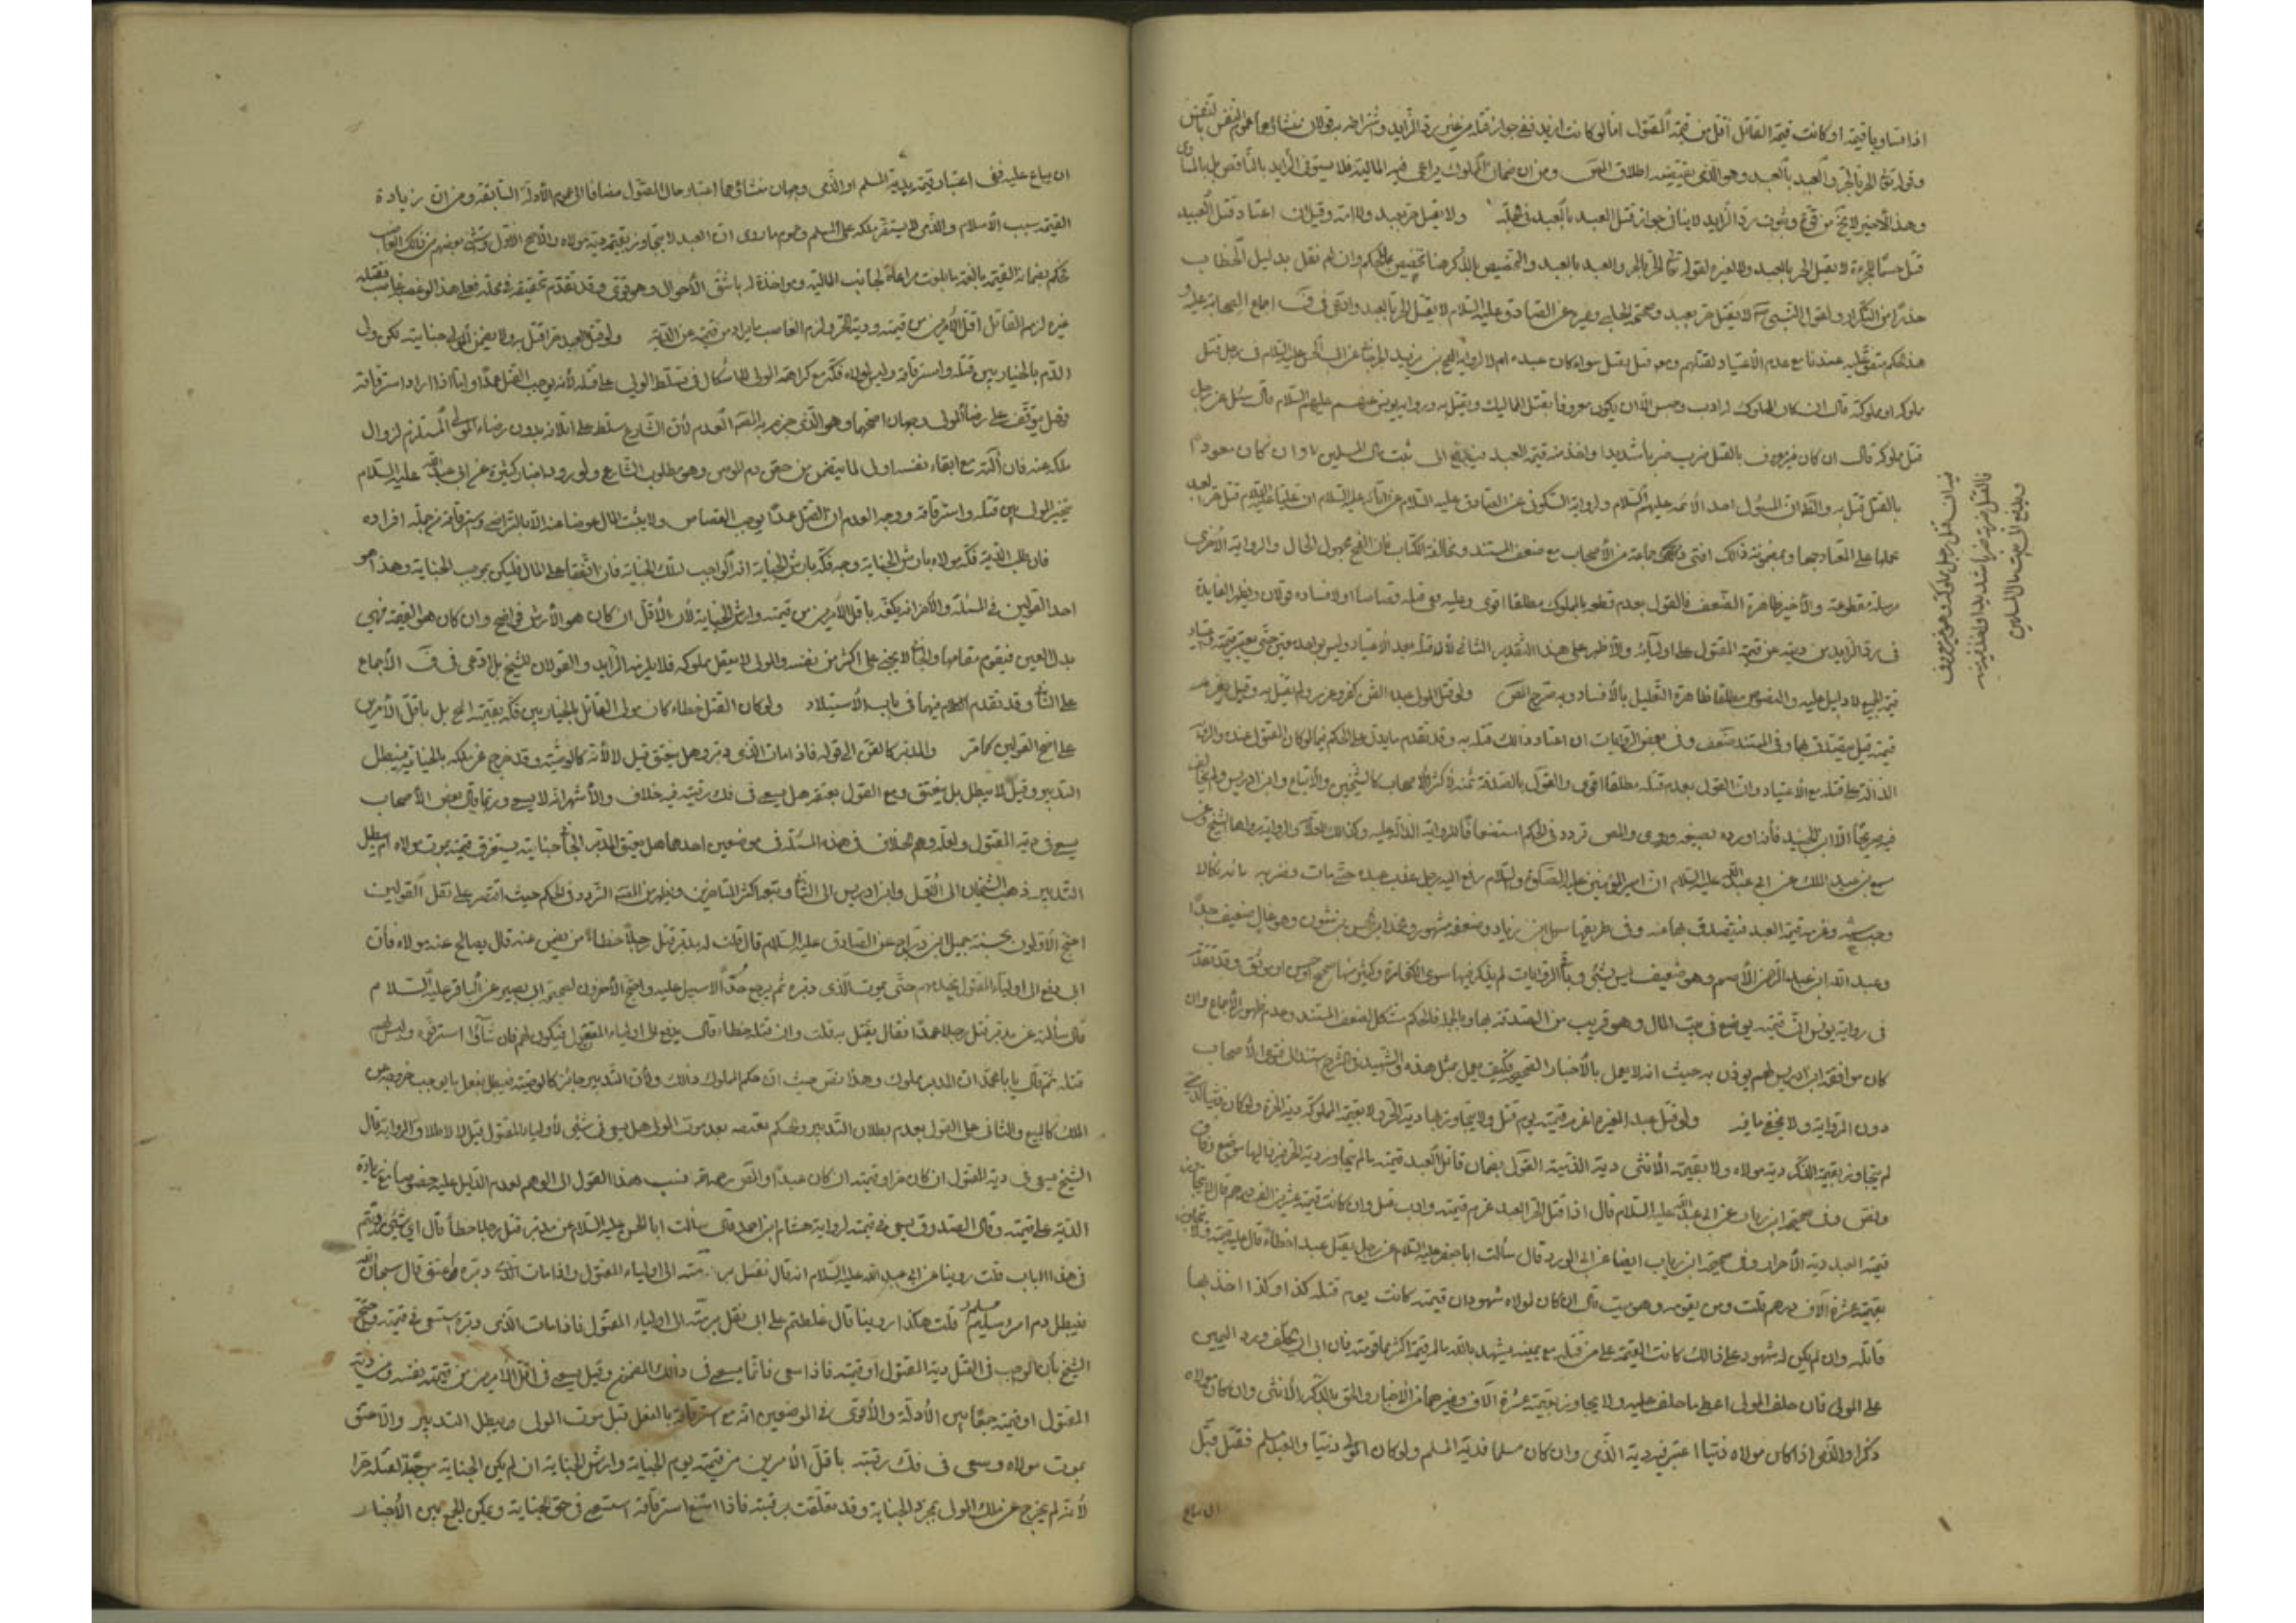 اذا تساويا قيمة او كانت قيمة القاتل أقل من قيمة المقتول اما لو كانت ازيد ففي جواز قتله من غير رد الزايد واشتراطه به قولان منشاؤهما عموم النفس بالنفس
وقوله تع الحر بالحر والعبد بالعبد وهو الذي يقتضيه اطلاق المص ومن ان ضمان المملوك يراعى فيه المالية فلا يستوفى الزايد بالناقص بل بالمساوى
وهذا الأخير لا يخ من قوة وثبوت رد الزايد لا ينافي جواز قتل العبد بالعبد في الجملة ولا يقتل حر بعبد ولا امة وقيل ان اعتاد قتل العبيد
قتل حسما للجرءة لا يقتل الحر بالعبد ولا لغيره لقوله تع الحر بالحر والعبد بالعبد والتخصيص بالذكر هنا تخصيص بالحكم وان لم نقل بدليل الخطاب
حذرا من التكرار ولقول النبي ص لا يقتل حر بعبد وصحيحة الحلبي وغيره عن الصادق عليه السلام لا يقتل الحر بالعبد وادعى في ف اجماع الصحابة عليه و
هذا الحكم متفق عليه عندنا مع عدم الأعتياد لقتلهم ومعه قيل يقتل سواء كان عبده ام لا لرواية الفتح بن يزيد الجرجاني عن ابى الحسن عليه السلام في رجل قتل
مملوكه او مملوكته قال ان كان المملوك له ادب وحبس الا ان يكون معروفا بقتل المماليك فيقتل به ورواية يونس عنهم عليهم السلام قال سئل عن رجل
قتل مملوكه قال ان كان غير معروف بالقتل ضرب ضربا شديدا واخذ منه قيمة العبد فيدفع الى بيت مال المسلمين وان كان متعودا
بالقتل قتل به والظ ان المسؤل احد الأئمة عليهم السلام ولرواية السكوني عن الصادق عليه السلام عن ابائه عليه السلام ان عليا عليه السلام قتل حرا بعبد
حملها على المعتاد جمعا وبمضمون ذلك افتى جماعة من الأصحاب مع ضعف المستند ومخالفة الكتاب فان الفتح مجهول الحال والرواية الأخرى
مرسلة مقطوعة والأخير ظاهرة الضعف فالقول بعدم قتله بالمملوك مطلقا اقوى وعليه ففي قتله قصاصا او لافساده قولان ويظهر الفايدة
في رد الزايد من ديته عن قيمة المقتول على اوليائه والأظهر على هذا التقدير الثاني لأن قتله بعد الأعتياد وليس بواحد معين حتى يعتبر قيمته واعتبار
قيمة الجميع لا دليل عليه والنصوص مطلقا ظاهرة التعليل بالأفساد وبه صرح المص ولو قتل المولى عبدا الص كفر وعزر ولم يقتل به وقيل يغرم
قيمته قيل يتصدق بها وفي المستند ضعف وفي بعض الروايات ان اعتاد ذلك قتل به وقد تقدم ما يدل على الحكم فيما لو كان المقتول عبده والرواية
الدالة على قتله مع الأعتياد وان القول بعدم قتله مطلقا اقوى والقول بالصدقة بثمنه لأكثر الأصحاب كالشيخين والأتباع وابن ادريس ولم يخالف
فيه صريحا الا ابن الجنيد فأنه اورده بصيغة وروى والمص تردد في الحكم استضعافا للرواية الدالة عليه وكذلك العلامة والرواية رواها الشيخ وغيره
مسمع بن عبد الملك عن ابي عبد الله عليه السلام ان امير المؤمنين عليه الصلوة والسلام رفع اليه رجل عذب عبده حتى مات فضربه مائة نكالا
وحبسه وغرمه قيمة العبد فيتصدق بها عنه وفي طريقها سهل بن زياد وضعفه مشهور ومحمد ابن الحسن بن شمون وهو غال ضعيف جدا
وعبد الله ابن عبد الرحمن الأصم وهو ضعيف ليس بشئ وباقي الروايات لم يذكر فيها سوى الكفارة وكثير منها صحيح او حسن او موثق وقد تقدم
في رواية يونس ان قيمته يوضع في بيت المال وهو قريب من الصدقة بها وبالجملة فالحكم مشكل لضعف المستند وعدم ظهور الأجماع وان
كان موافقة ابن ادريس لهم يوذن به حيث انه لا يعمل بالأخبار الصحيحة فكيف يعمل بمثل هذه والشهيد في الشرح استند الى فتوى الأصحاب
دون الرواية ولا يخفى ما فيه ولو قتل عبدا لغيره اغرم قيمته يوم قتل ولا يتجاوز بها دية الحر ولا بقيمة المملوكة دية الحرة ولو كان ذميا لذمى
لم يتجاوز بقيمة الذكر دية مولاه ولا بقيمة الأنثى دية الذمية القول بضمان قاتل العبد قيمته ما لم يتجاوز دية الحر فيرد اليها موضع وفاق
ونص وفي صحيحة ابن رئاب عن ابى عبد الله عليه السلام قال اذا قتل الحر العبد غرم قيمته وادب قيل وان كانت قيمته عشرين الف درهم قال لا يتجاوز
قيمة العبد دية الأحرار وفي صحيحة ابن رئاب ايضا عن ابى الورد قال سألت ابا جعفر عليه السلام عن رجل يقتل عبدا خطأ قال عليه قيمته ولا يتجاوز
بقيمته عشرة الآف درهم قلت ومن يقومه وهو ميت قال ان كان لمولاه شهود ان قيمته كانت يوم قتله كذا وكذا اخذ بها
قاتله وان لم يكن له شهود على ذلك كانت القيمة على من قتله مع يمينه يشهد بالله ما له قيمة اكثر مما قومته فان ابى ان يحلف ورد اليمين
على المولى فان حلف المولى اعطى ما حلف عليه ولا يجاوز بقيمته عشرة الآف وغيرهما من الأخبار والحق بالذكر الأنثى وان كان مولاه
ذكرا والذمى اذا كان مولاه ذميا اعتبر فيه دية الذمى وان كان مسلما فدية المسلم ولو كان المولى ذميا والعبد مسلم فقتل قبل
ان يباع
فيمن قتل رجل مملوكه وهو غير معروف
بالقتل ضرب ضربا شديدا واخذ قيمته
ويدفع الى بيت مال المسلمين
ان يباع عليه ففي اعتبار قيمته بدية المسلم او الذمى وجهان منشاؤهما اعتبار حال المقتول مضافا الى عموم الأدلة السابقة ومن ان زيادة
القيمة بسبب الأسلام والذمى لا يستقر ملكه على المسلم وعموم ما روى ان العبد لا يتجاوز بقيمته دية مولاه والأصح الأول واستثنى بعضهم من ذلك الغاصب
فحكم بضمانه القيمة بالغة ما بلغت مراعاة لجانب المالية ومواخذة له باشق الأحوال وهو قوى وقد تقدم تحقيقه في محله فعلى هذا لو غصبه غاصب فقتله
غيره لزم القاتل اقل الأمرين من قيمته ودية الحر ولزم الغاصب ما زاد من قيمته عن الدية ولو قتل العبد حرا قتل به ولا يضمن المولى جنايته لكن ولى
الدم بالخيار بين قتله واسترقاقه وليس لمولاه فكه مع كراهة الولى لا اشكال في تسلط الولى على قتله لأنه يوجب القتل عمدا واما اذا اراد استرقاقه
فهل يتوقف على رضا المولى وجهان اصحهما وهو الذي جزم به المصنف العدم لأن الشارع سلط على اتلافه بدون رضاء المولى المستلزم لزوال
ملكه عنه فازالته مع ابقاء نفسه اولى لما يتضمن من حقن دم المومن وهو مطلوب الشارع ولورود اخبار كثيرة عن ابى عبد الله عليه السلام
بتخيير الولى بين قتله واسترقاقه ووجه العدم ان القتل عمدا يوجب القصاص ولا يثبت المال عوضا عنه الا بالتراضى واسترقاقه من جملة افراده
فان طلب الدية فكه مولاه بارش الجناية وجه فكه بارش الجناية انه الواجب لتلك الجناية فان اتفقا على المال فليكن بموجب الجناية وهذا هو
احد القولين في المسئلة والآخر انه يفكه باقل الأمرين من قيمته وارش الجناية لأن الأقل ان كان هو الأرش فواضح وان كان هو القيمة فهى
بدل العين فيقوم مقامها والجاني لا يجنى على اكثر من نفسه والمولى لا يعقل مملوكه فلا يلزمه الزايد والقولان للشيخ بل ادعى في ف الأجماع
على الثاني وقد تقدم الكلام فيهما في باب الأستيلاد ولو كان القتل خطاء كان مولى القاتل بالخيار بين فكه بقيمته الح بل باقل الأمرين
على اصح القولين كما مر والمدبر كالقن الى قوله فاذا مات الذي دبره هل ينعتق قيل لا لأنه كالوصية وقد خرج عن ملكه بالجناية فيبطل
التدبير وقيل لا يبطل بل ينعتق ومع القول بعتقه هل يسعى في فك رقبته فيه خلاف والأشهر انه لا يسعى وربما قال بعض الأصحاب
يسعى في دية المقتول ولعله وهم الخلاف في هذه المسئلة في موضعين احدهما هل يعتق المدبر الجاني جناية يستغرق قيمته بموت مولاه ام يبطل
التدبير ذهب الشيخان الى الأول وابن ادريس الى الثاني وتبعه اكثر المتأخرين ويظهر من المص التردد في الحكم حيث اقتصر على نقل القولين
احتج الأولون بحسنة جميل ابن دراج عن الصادق عليه السلام قال قلت له مدبر قتل رجلا خطأ من يضمن عنه قال يصالح عنه مولاه فان
ابى دفع الى اولياء المقتول يخدمهم حتى يموت الذي دبره ثم يرجع حرا لا سبيل عليه واحتج الآخرون بصحيحة ابى بصير عن الباقر عليه السلام
قال سألته عن مدبر قتل رجلا عمدا فقال يقتل به قلت وان قتله خطاء قال يدفع الى اولياء المقتول فيكون لهم فان شاؤا استرقوه وليس لهم
قتله ثم قال يا با محمد ان المدبر مملوك وهذا نص حيث ان حكم المملوك ذلك ولأن التدبير جائز كالوصية فيبطل بفعل ما يوجب خروجه عن
الملك كالبيع والثاني على القول بعدم بطلان التدبير والحكم بعتقه بعد موت المولى هل يسعى في شئ لأولياء المقتول قيل لا لاطلاق الرواية قال
الشيخ يسعى في دية المقتول ان كان حرا وقيمته ان كان عبدا والمص رحمه الله نسب هذا القول الى الوهم لعدم الدليل عليه خصوصا مع زيادة
الدية على قيمته وقال الصدوق يسعى في قيمته لرواية هشام ابن احمد قال سألت ابا الحسن عليه السلام عن مدبر قتل رجلا خطأ قال اى شئ رويتم
في هذا الباب قلت روينا عن ابى عبد الله عليه السلام انه قال يتل برمته الى اولياء المقتول واذا مات الذي دبره عتق قال سبحان الله
فيبطل دم امرء مسلم قلت هكذا روينا قال غلطتم على ابى يتل برمته الى اولياء المقتول فاذا مات الذي دبره استسعى في قيمته واحتج
الشيخ بأن الواجب في القتل دية المقتول او قيمته فاذا سعى فانما يسعى في ذلك وقيل يسعى في اقل الأمرين من قيمة نفسه ومن دية
المقتول او قيمته جمعا بين الأدلة والأقوى في الموضعين انه مع استرقاقه بالفعل قبل موت المولى يبطل التدبير والا عتق
بموت مولاه وسعى في فك رقبته باقل الأمرين من قيمته يوم الجناية وارش الجناية ان لم يكن الجناية موجبة لقتله حرا
لأنه لم يخرج عن ملك المولى بمجرد الجناية وقد تعلقت برقبته فاذا امتنع استرقاقه استسعى في حق الجناية ويمكن الجمع بين الأخبار